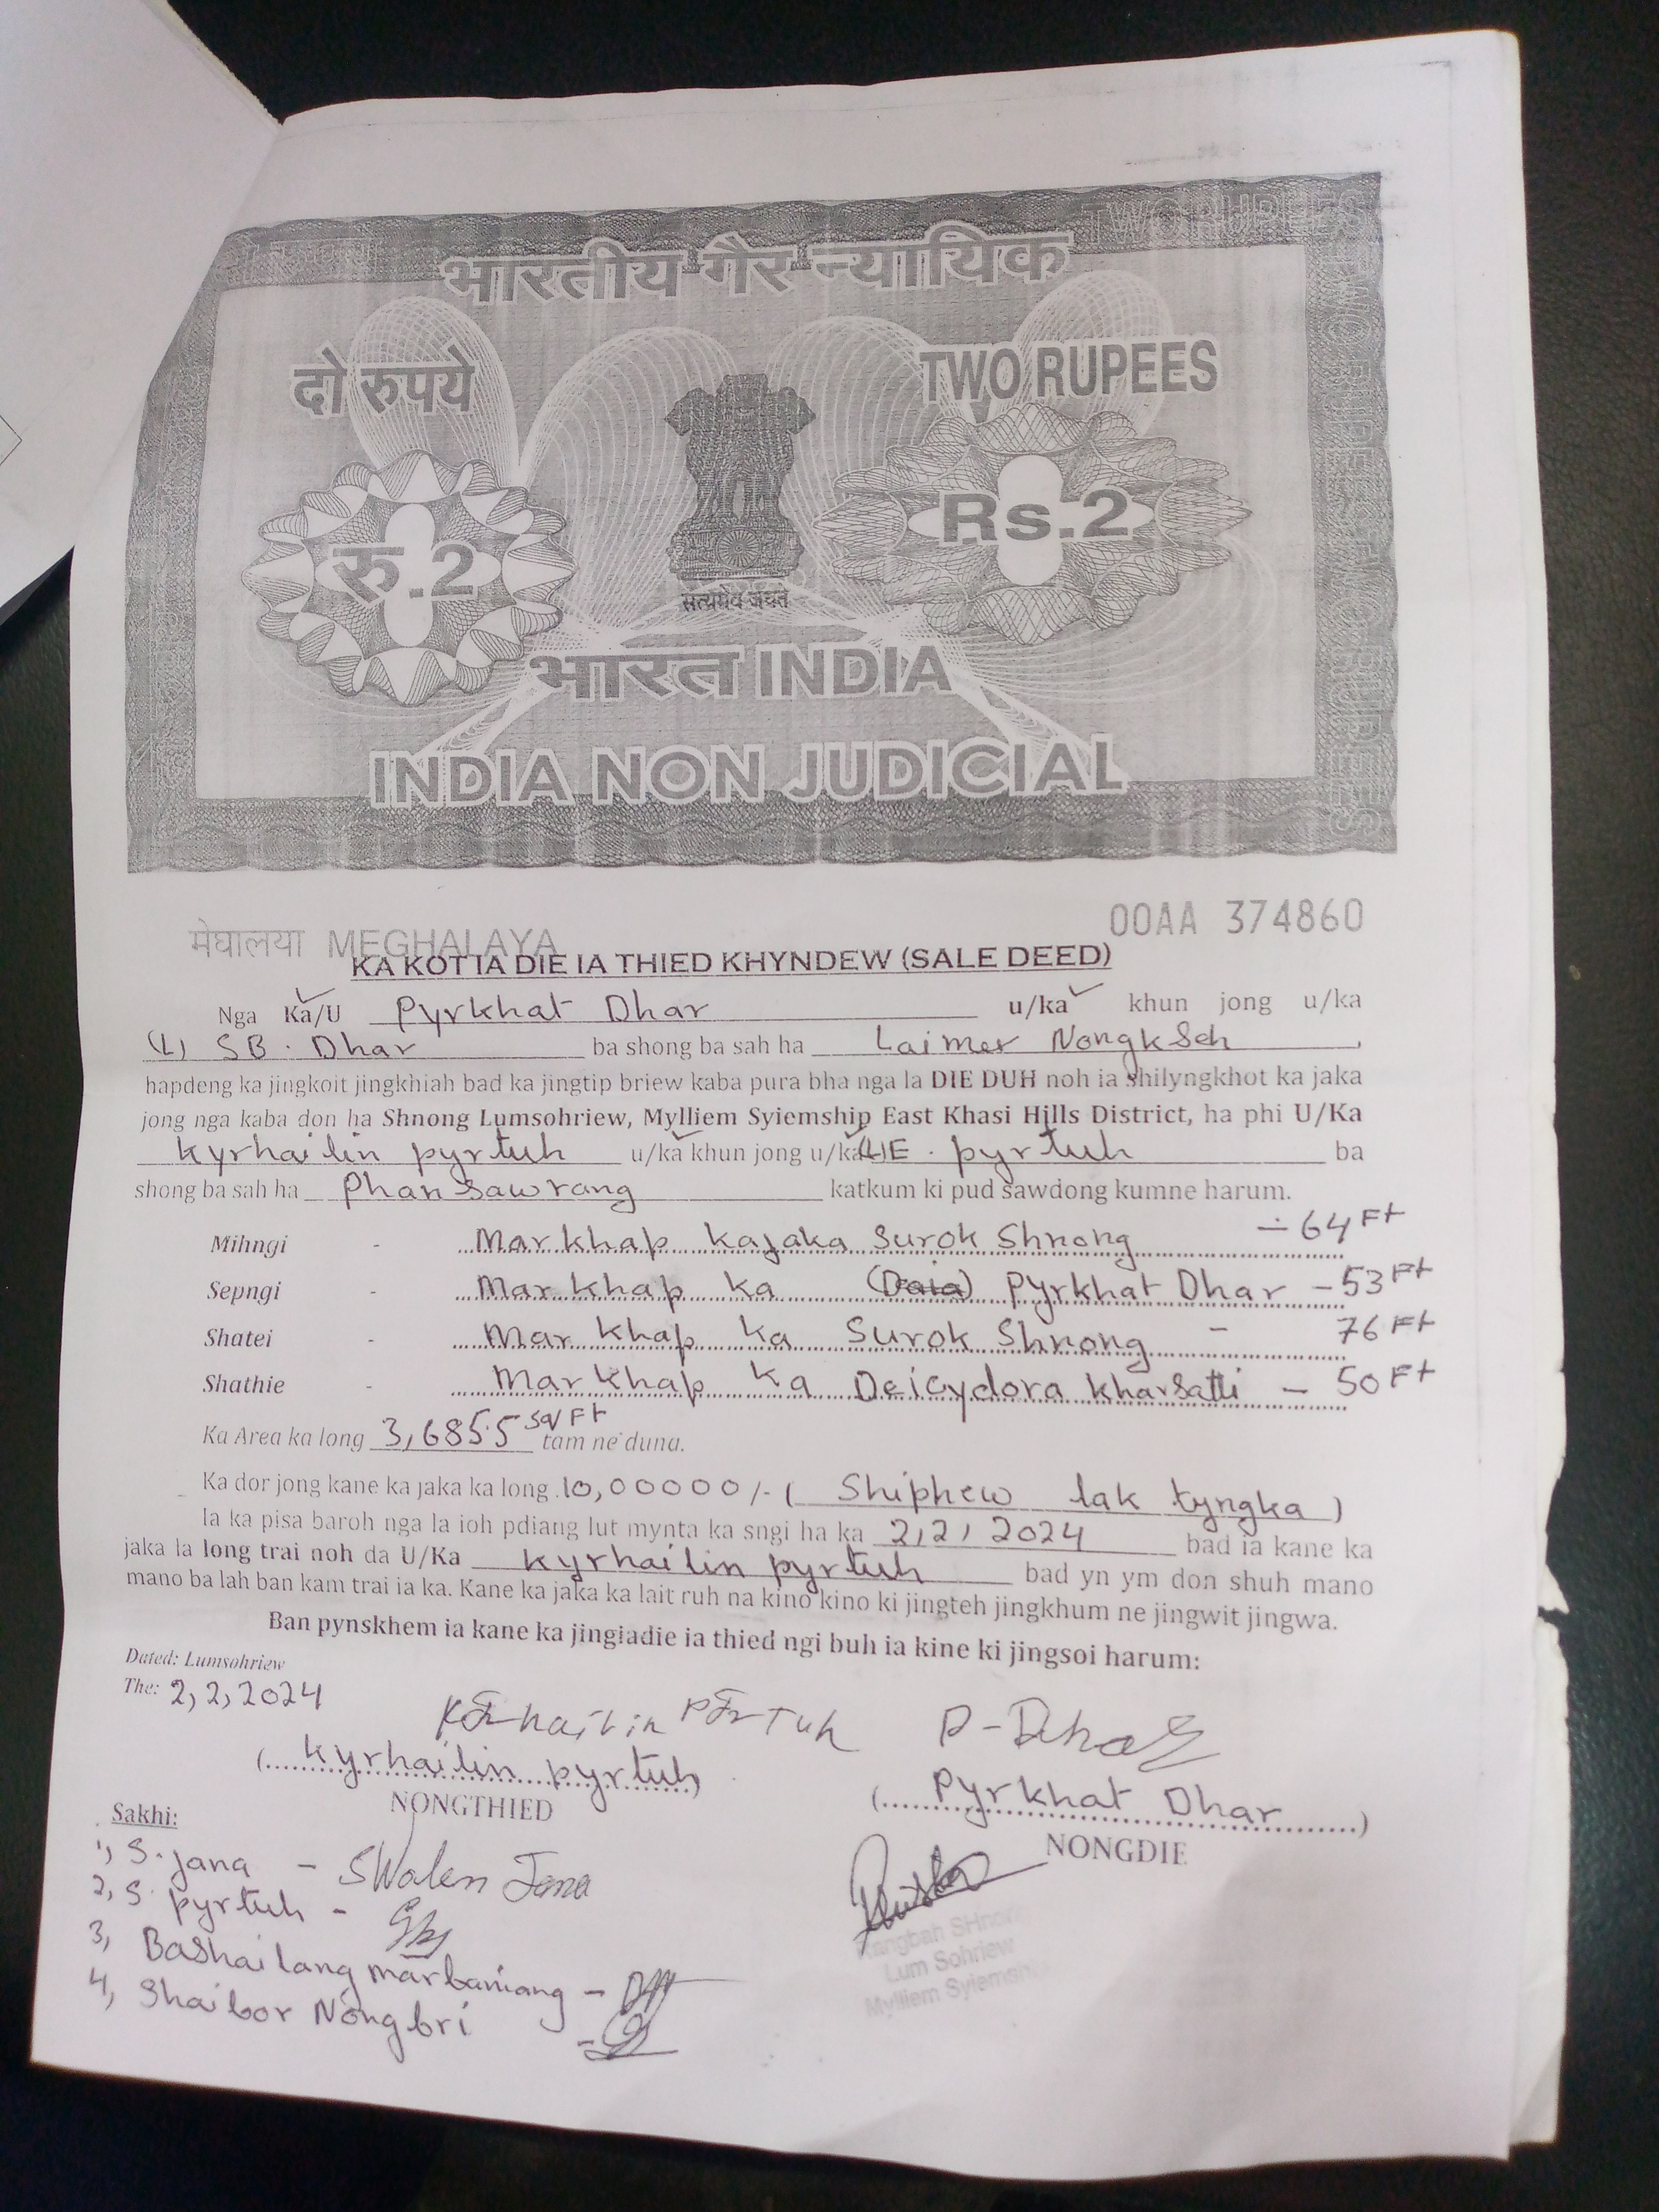 TWO RUPEES
भारतीय गैर न्यायिक
दो रुपये TWO RUPEES
रु.2 Rs.2
सत्यमेव जयते
भारत INDIA
INDIA NON JUDICIAL
मेघालया MEGHALAYA 00AA 374860
KA KOT IA DIE IA THIED KHYNDEW (SALE DEED)
Nga Ka/U Pyrkhat Dhar u/ka khun jong u/ka
(L) SB. Dhar ba shong ba sah ha Laimer Nongkseh,
hapdeng ka jingkoit jingkhiah bad ka jingtip briew kaba pura bha nga la DIE DUH noh ia shilyngkhot ka jaka
jong nga kaba don ha Shnong Lumsohriew, Mylliem Syiemship East Khasi Hills District, ha phi U/Ka
Kyrhailin pyrtuh u/ka khun jong u/ka (L)E. pyrtuh ba
shong ba sah ha Phansawrang katkum ki pud sawdong kumne harum.
Mihngi - Markhap kajaka Surok Shnong - 64 Ft
Sepngi - Markhap ka Pyrkhat Dhar - 53 Ft
Shatei - Markhap ka Surok Shnong - 76 Ft
Shathie - Markhap ka Deicydora kharsatti - 50 Ft
Ka Area ka long 3,685.5 sq Ft tam ne duna.
Ka dor jong kane ka jaka ka long 10,00000/- (Shiphew lak tyngka)
Ia ka pisa baroh nga la ioh pdiang lut mynta ka sngi ha ka 2,2,2024 bad ia kane ka
jaka la long trai noh da U/Ka Kyrhailin pyrtuh bad yn ym don shuh mano
mano ba lah ban kam trai ia ka. Kane ka jaka ka lait ruh na kino kino ki jingteh jingkhum ne jingwit jingwa.
Ban pynskhem ia kane ka jingiadie ia thied ngi buh ia kine ki jingsoi harum:
Dated: Lumsohriew
The: 2,2,2024
P-Dhar
(Kyrhailin pyrtuh)
(Pyrkhat Dhar)
NONGTHIED
NONGDIE
Sakhi:
1, S. Jana - SWalen Jana
2, S. pyrtuh -
3, Bashailang marbaniang -
4, Shaibor Nongbri -
Rangbah SHnong
Lum Sohriew
Mylliem Syiemship